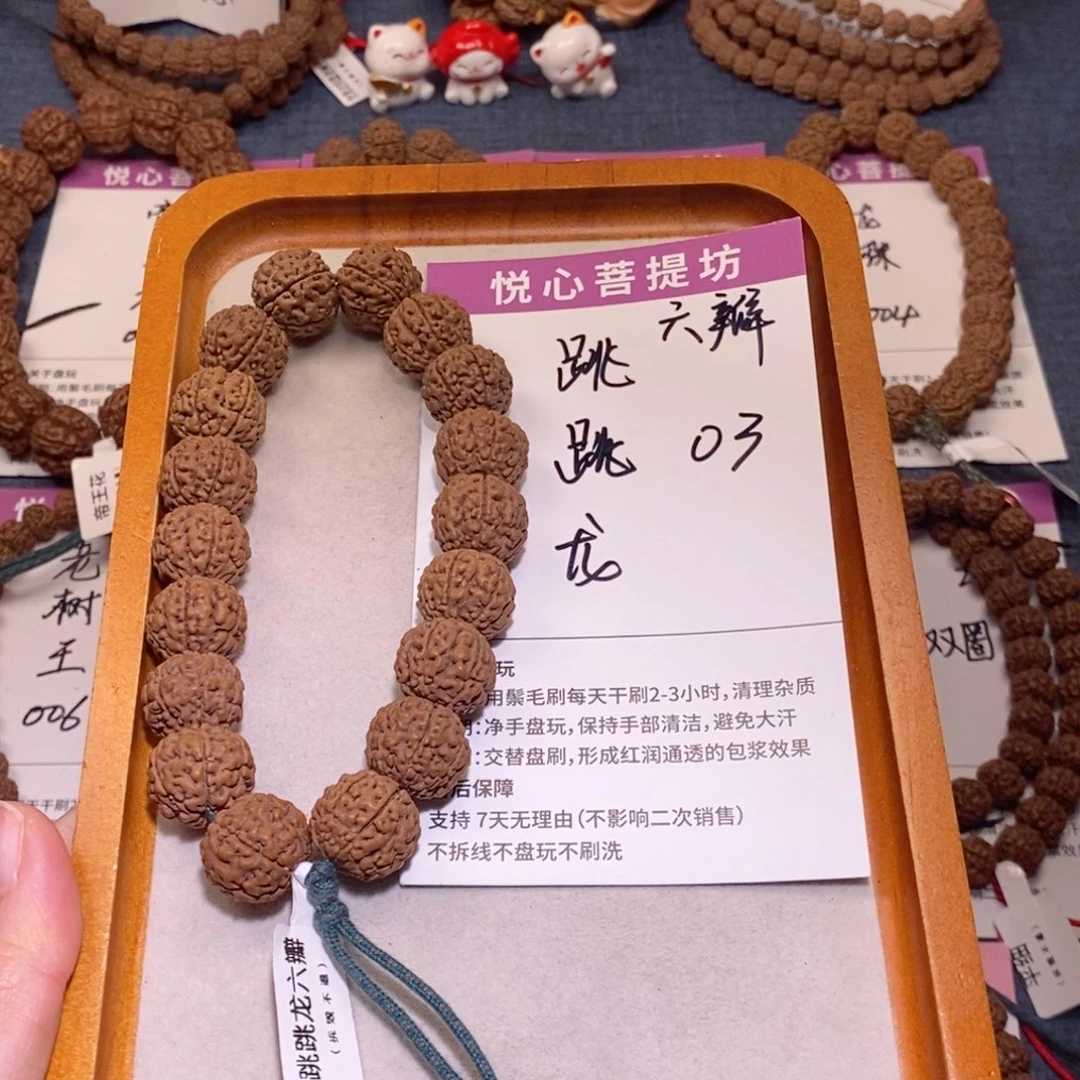 悦心菩
悦心菩提坊
六瓣
跳
跳
龙
03
玩
用鬃毛刷每天干刷2-3小时,清理杂质
:净手盘玩,保持手部清洁,避免大汗
:交替盘刷,形成红润通透的包浆效果
后保障
支持 7天无理由(不影响二次销售)
不拆线不盘玩不刷洗
跳跳龙六瓣
(拆毁不退)
心菩提
004
关于盘玩
用鬃毛刷每
帝王花
老
树
王
006
双圈